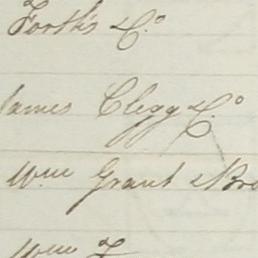 Forth's & Co
James Clegg & Co
Wm Grant & Bro
Wm